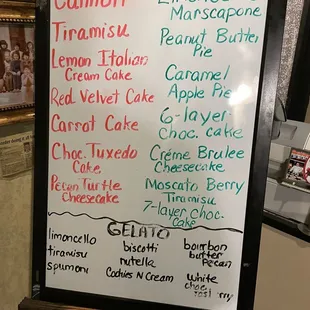 Cannoli
Tiramisu
Lemon Italian
Cream Cake
Red Velvet Cake
Carrot Cake
Choc. Tuxedo
Cake
Pecan Turtle
Cheesecake
Marscapone
Peanut Butter
Pie
Caramel
Apple Pie
6-layer
Choc. cake
Créme Brulee
Cheesecake
Moscato Berry
Tiramisu
7-layer Choc.
Cake
GELATO
limoncello
tiramisu
spumoni
biscotti
nutella
Cookies N Cream
bourbon
butter
pecan
white
choc